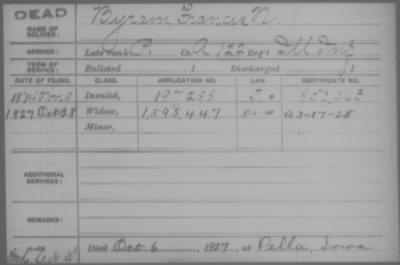 DEAD
NAME OF SOLDIER: Byram Francis N.
SERVICE: Late rank P. Co. A. 122 Reg't Ill Inf
TERM OF SERVICE: Enlisted , 1 Discharged , 1
DATE OF FILING. CLASS. APPLICATION NO. LAW. CERTIFICATE NO.
Invalid,
1927 Oct 28 Widow, 1,595,447 a 3-17-28
Minor,
ADDITIONAL SERVICES:
REMARKS:
Died Oct 6, 1927, at Pella, Iowa